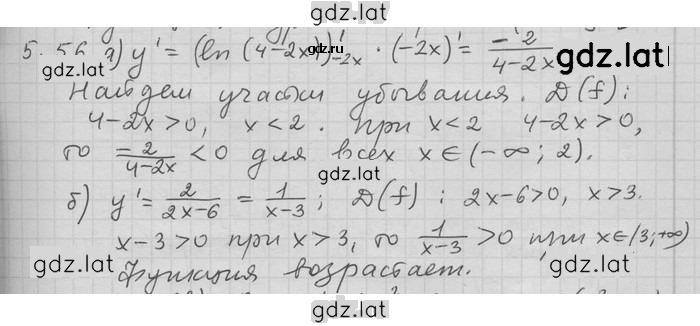 gdz.lat
5.56 а) y' = (ln (4-2x))'₋₂ₓ · (-2x)' = -2/(4-2x)
gdz.lat gdz.lat
Найдем участки убывания. D(f):
4-2x>0, x<2. При x<2 4-2x>0,
то -2/(4-2x) <0 для всех x∈(-∞; 2).
gdz.lat
б) y' = 2/(2x-6) = 1/(x-3); D(f): 2x-6>0, x>3.
x-3>0 при x>3, то 1/(x-3) >0 при x∈(3;+∞)
gdz.lat gdz.lat
Функция возрастает.
gdz.lat